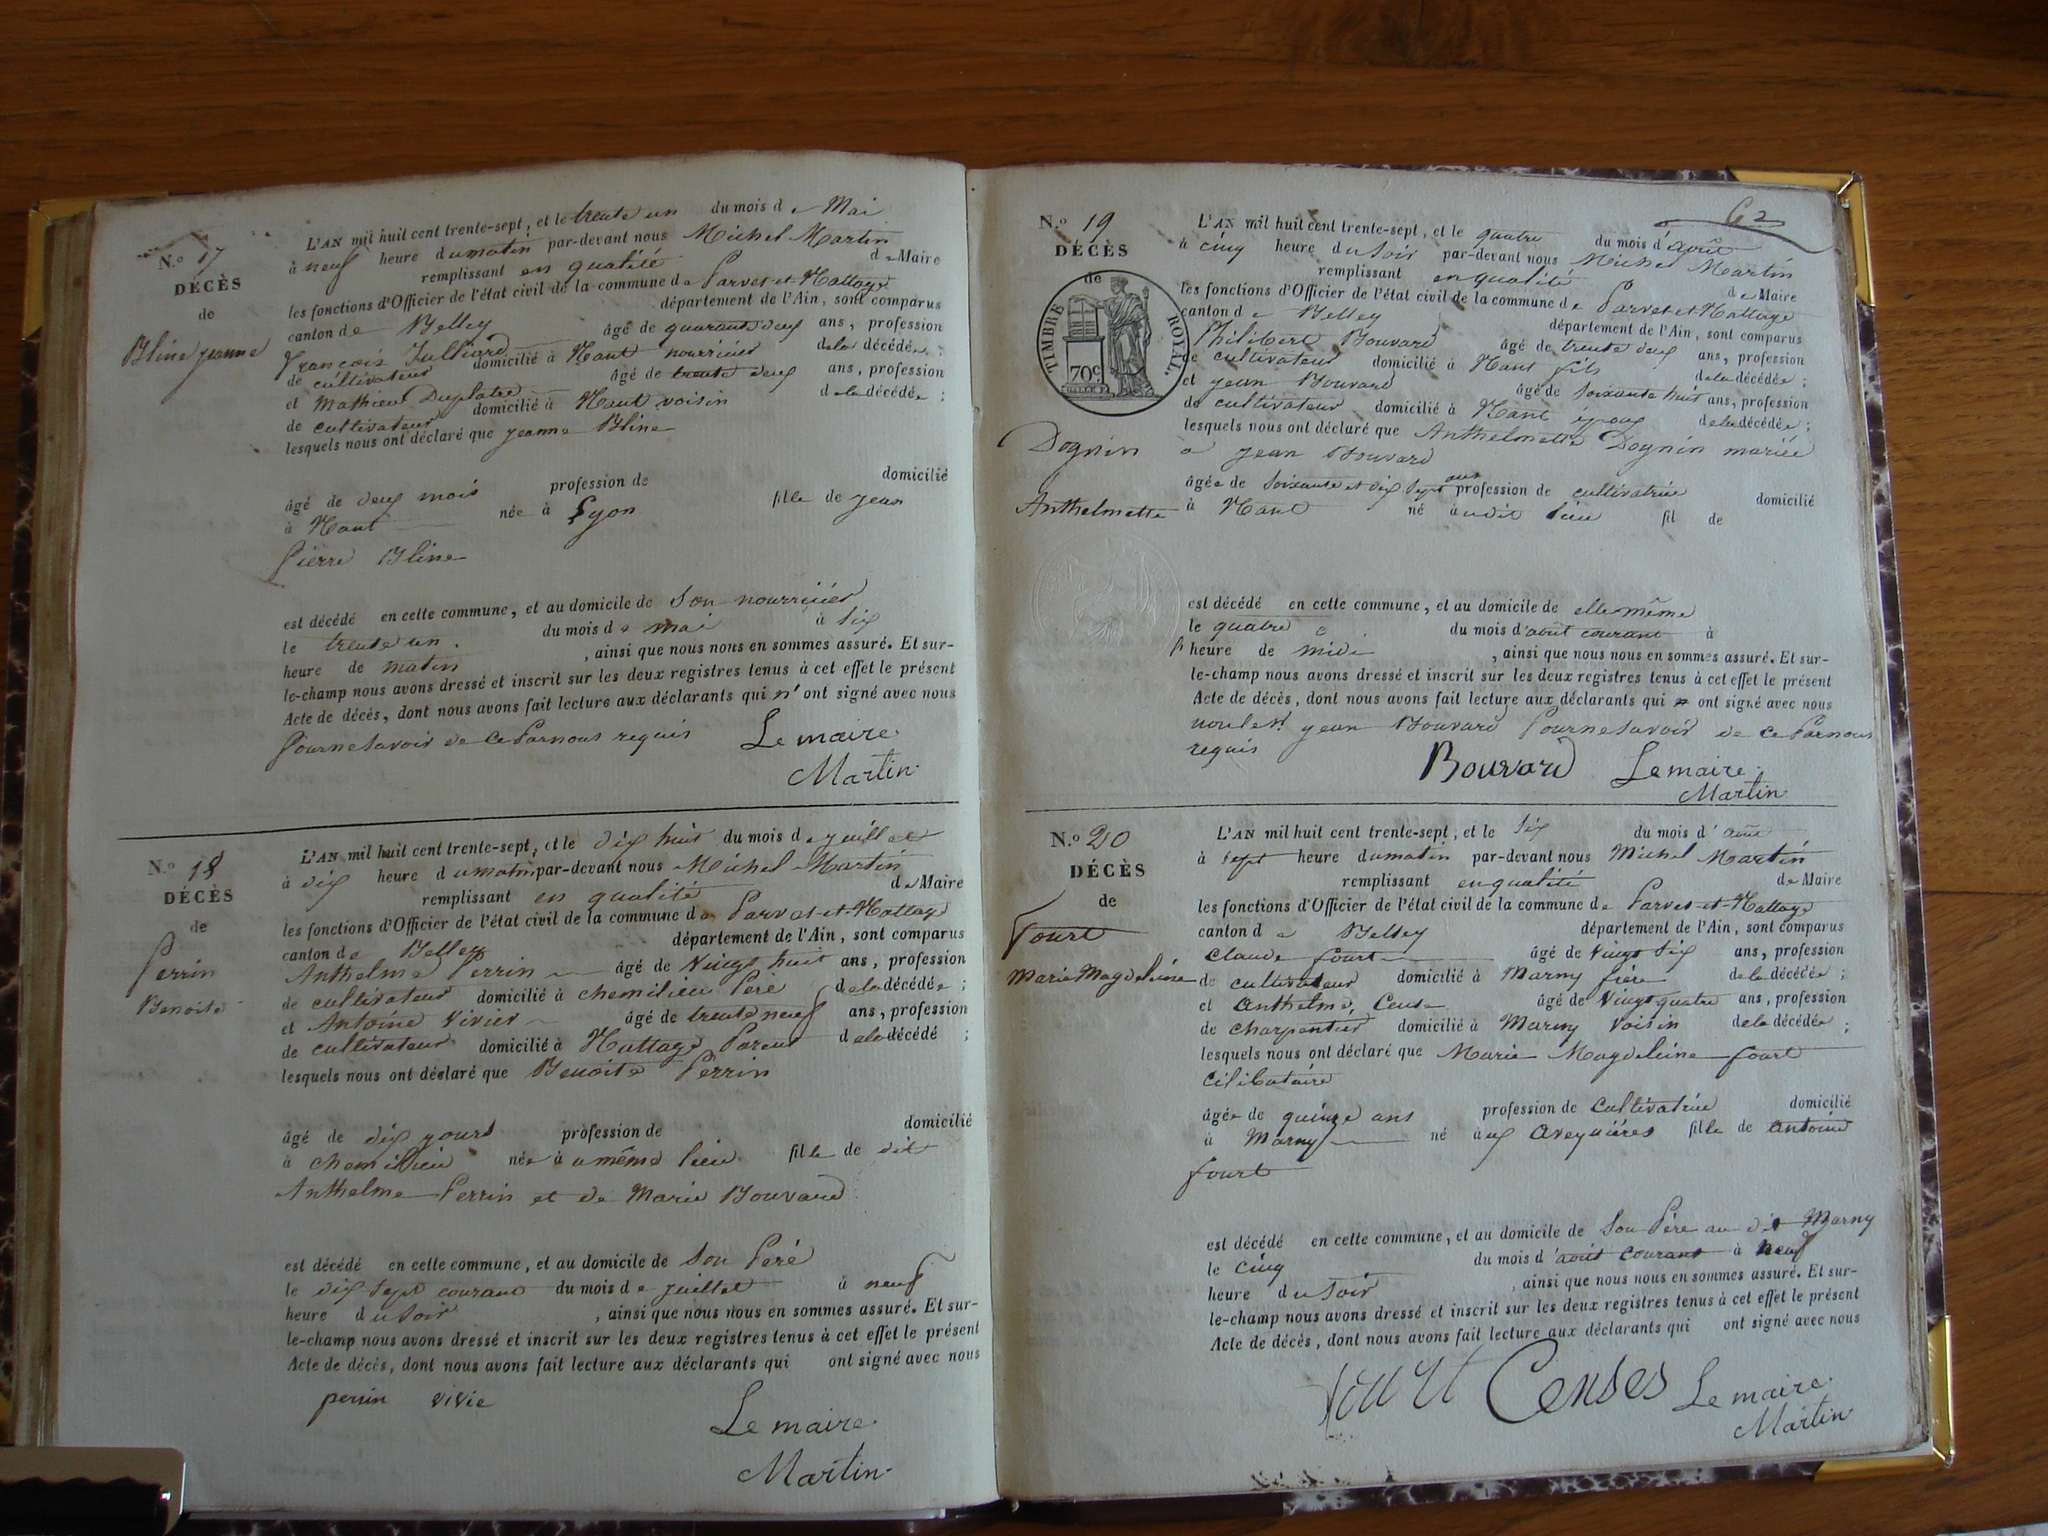 N.º 17
DÉCÈS
de
Bline jeanne
L'AN mil huit cent trente-sept, et le trente un du mois de Mai
à neuf heure du matin par-devant nous Michel Martin
remplissant en qualité de Maire
les fonctions d'Officier de l'état civil de la commune de Parves-et-Nattage
canton de Belley département de l'Ain, sont comparus
François Julliard âgé de quarante deux ans, profession
de cultivateur domicilié à Nant nourricier de la décédée;
et Mathieu Duplatre âgé de trente deux ans, profession
de cultivateur domicilié à Nant voisin de la décédée;
lesquels nous ont déclaré que jeanne Bline
âgé de deux mois profession de domicilié
à Nant née à Lyon fille de jean
Pierre Bline
est décédé en cette commune, et au domicile de son nourricier
le trente un du mois de mai à six
heure de matin, ainsi que nous nous en sommes assuré. Et sur-
le-champ nous avons dressé et inscrit sur les deux registres tenus à cet effet le présent
Acte de décès, dont nous avons fait lecture aux déclarants qui n' ont signé avec nous
Pour ne savoir de ce Par nous requis Le maire
Martin
N.º 18
DÉCÈS
de
Perrin
Benoite
L'AN mil huit cent trente-sept, et le dix huit du mois de juillet
à dix heure du matin par-devant nous Michel Martin
remplissant en qualité de Maire
les fonctions d'Officier de l'état civil de la commune de Parves-et-Nattage
canton de Belley département de l'Ain, sont comparus
Anthelme Perrin âgé de vingt huit ans, profession
de cultivateur domicilié à chemilieu Père de la décédée;
et Antoine Vivier âgé de trente neuf ans, profession
de cultivateur domicilié à Nattage Parent de la décédé;
lesquels nous ont déclaré que Benoite Perrin
âgé de dix jours profession de domicilié
à chemilieu née au même lieu fille de dit
Anthelme Perrin et de Marie Bouvard
est décédé en cette commune, et au domicile de son Père
le dix sept courant du mois de juillet à neuf
heure du soir, ainsi que nous nous en sommes assuré. Et sur-
le-champ nous avons dressé et inscrit sur les deux registres tenus à cet effet le présent
Acte de décès, dont nous avons fait lecture aux déclarants qui ont signé avec nous
perrin vivie Le maire
Martin
62
N.º 19
DÉCÈS
de
TIMBRE ROYAL
70c
Dognin
Anthelmette
L'AN mil huit cent trente-sept, et le quatre du mois d'août
à cinq heure du soir par-devant nous Michel Martin
remplissant en qualité de Maire
les fonctions d'Officier de l'état civil de la commune de Parves-et-Nattage
canton de Belley département de l'Ain, sont comparus
Philibert Bouvard âgé de trente deux ans, profession
de cultivateur domicilié à Nant fils de la décédée;
et jean Bouvard âgé de soixante huit ans, profession
de cultivateur domicilié à Nant époux de la décédée;
lesquels nous ont déclaré que Anthelmette Dognin mariée
a jean Bouvard
âgée de soixante et dix sept ans profession de cultivatrice domicilié
à Nant né audit lieu fil de
est décédé en cette commune, et au domicile de elle même
le quatre du mois d'août courant à
heure de midi, ainsi que nous nous en sommes assuré. Et sur-
le-champ nous avons dressé et inscrit sur les deux registres tenus à cet effet le présent
Acte de décès, dont nous avons fait lecture aux déclarants qui ont signé avec nous
jean Bouvard Pour ne savoir de ce Par nous
requis
Bouvard Le maire
Martin
N.º 20
DÉCÈS
de
Fourt
Marie Magdeleine
L'AN mil huit cent trente-sept, et le six du mois d'août
à sept heure du matin par-devant nous Michel Martin
remplissant en qualité de Maire
les fonctions d'Officier de l'état civil de la commune de Parves-et-Nattage
canton de Belley département de l'Ain, sont comparus
Claude fourt âgé de vingt six ans, profession
de cultivateur domicilié à Marny frère de la décédée;
et Anthelme âgé de vingt quatre ans, profession
de charpentier domicilié à Marny voisin de la décédée;
lesquels nous ont déclaré que Marie Magdeleine fourt
Cilibataire
âgée de quinze ans profession de Cultivatrice domicilié
à Marny né aux aveynieres fille de antoine
fourt
est décédé en cette commune, et au domicile de son Père au dit Marny
le cinq du mois d'août courant à neuf
heure du soir, ainsi que nous nous en sommes assuré. Et sur-
le-champ nous avons dressé et inscrit sur les deux registres tenus à cet effet le présent
Acte de décès, dont nous avons fait lecture aux déclarants qui ont signé avec nous
fourt Censes Le maire
Martin